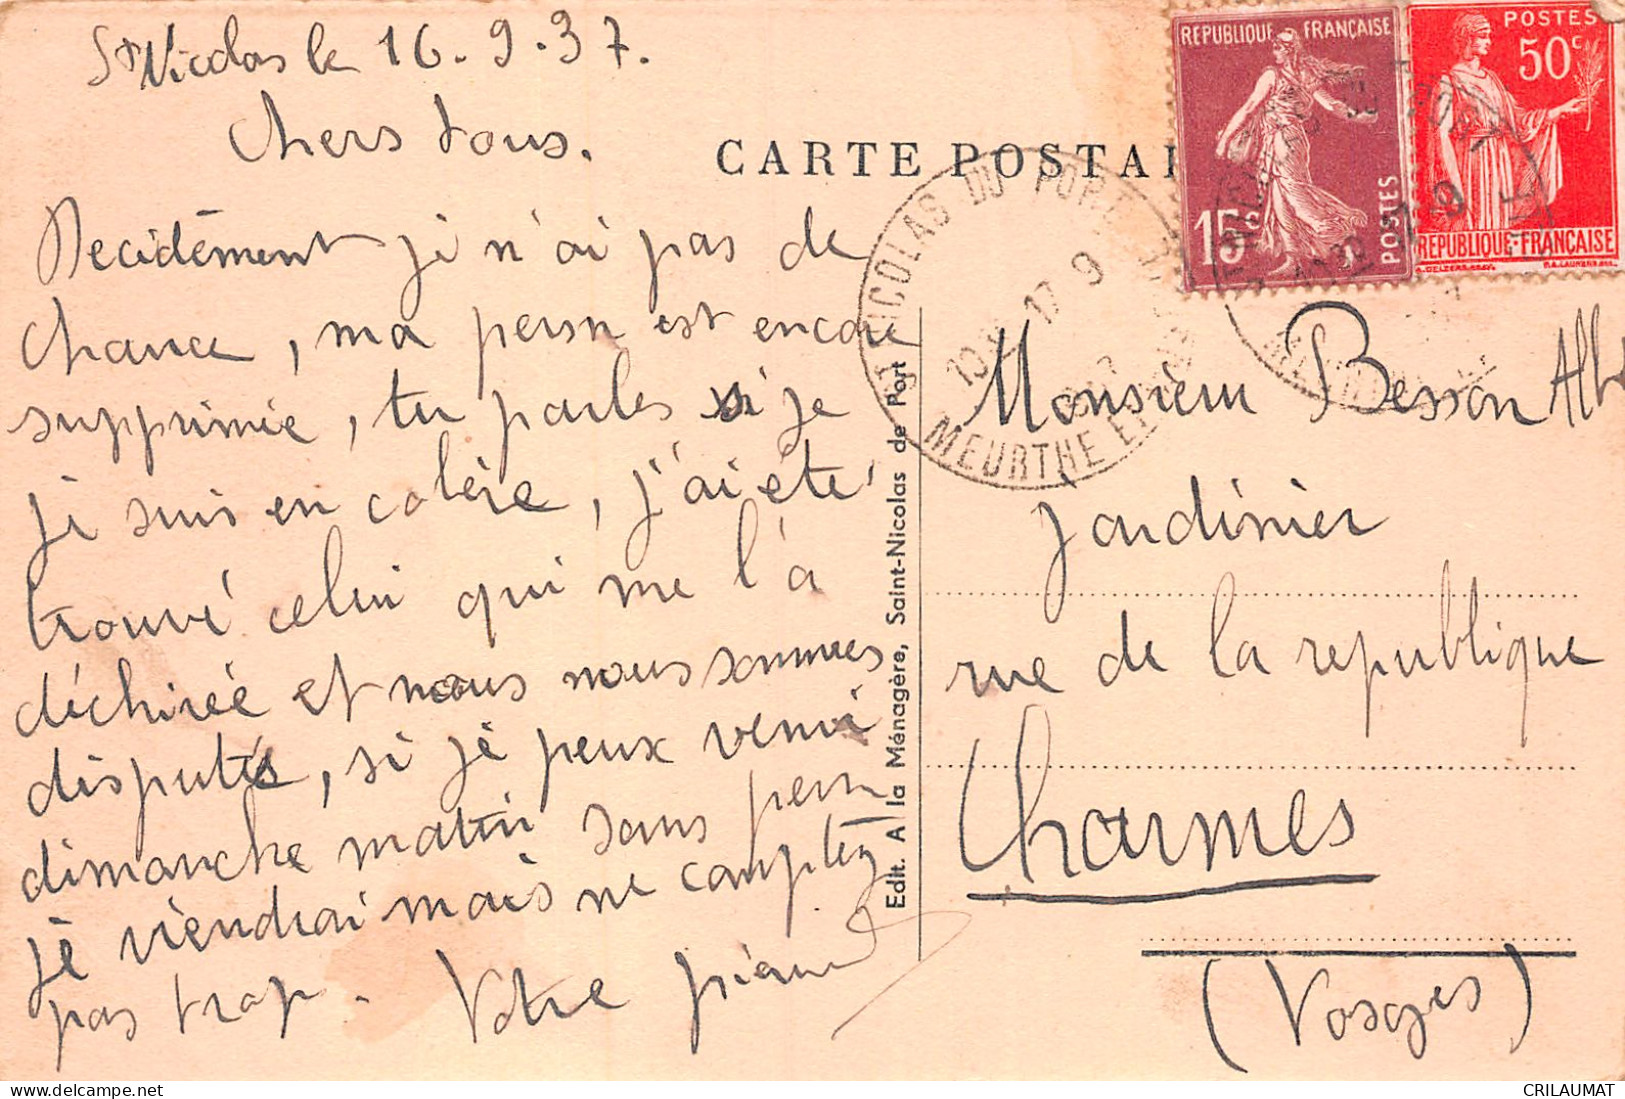 St Nicolas le 16.9.37.
Chers tous.
Decidément je n'ai pas de
chance, ma perm est encore
supprimée, tu parles si je
je suis en colère, j'ai été
trouvé celui qui me l'a
déchirée et nous nous sommes
disputés, si je peux venir
dimanche matin sans perm
je viendrai mais ne comptez
pas trop. Votre
CARTE POSTAL
REPUBLIQUE FRANÇAISE
15c
POSTES
POSTES
50c
REPUBLIQUE-FRANÇAISE
ST NICOLAS DU PORT
17 9
MEURTHE ET
Edit. A la Ménagère, Saint-Nicolas de Port
Monsieur Besson Alb
Jardinier
rue de la republique
Charmes
(Vosges)
delcampe.net
CRILAUMAT